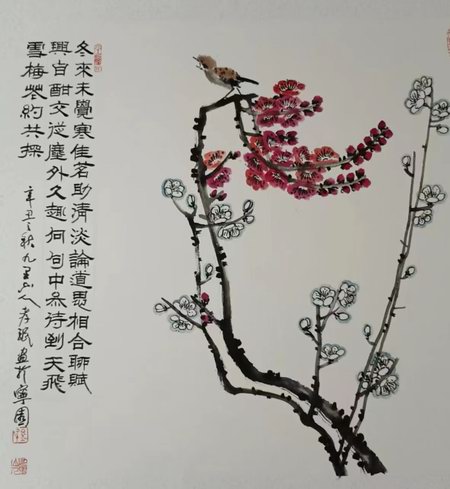 冬來未覺寒佳名助清淡論道思相合聊賦
興自酣交從塵外久趣向句中參待到天飛
雪梅花約共探
辛丑之秋九里山人孝珉畫於寧園